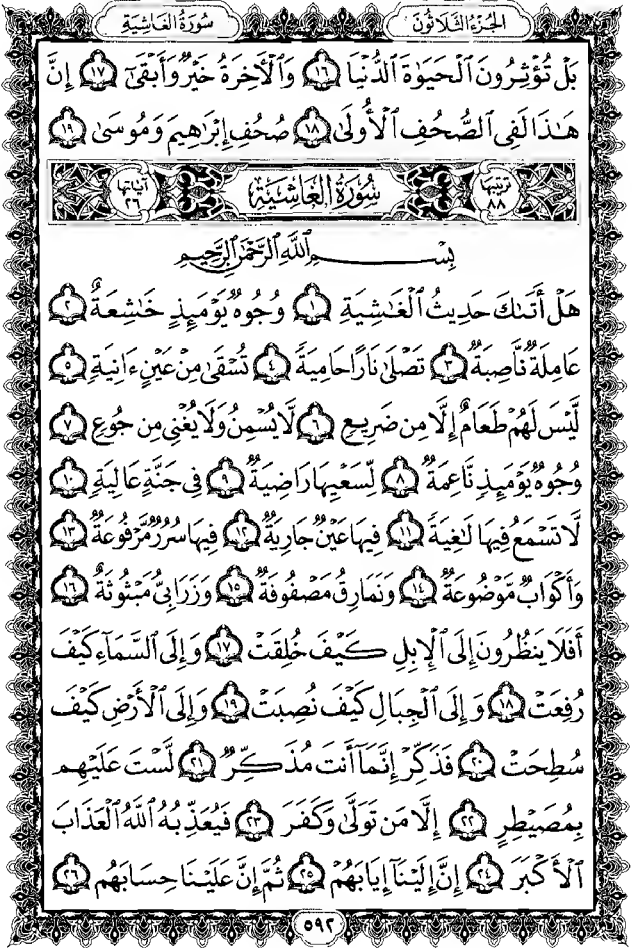 سُورَةُ الغَاشِيَةِ الجُزْءُ الثَّلَاثُونَ
بَلْ تُؤْثِرُونَ ٱلْحَيَوٰةَ ٱلدُّنْيَا ١٦ وَٱلْأٓخِرَةُ خَيْرٌ وَأَبْقَىٰٓ ١٧ إِنَّ
هَٰذَا لَفِى ٱلصُّحُفِ ٱلْأُولَىٰ ١٨ صُحُفِ إِبْرَٰهِيمَ وَمُوسَىٰ ١٩
ترتيبها ٨٨ سُورَةُ الغَاشِيَةِ آياتها ٢٦
بِسْمِ ٱللَّهِ ٱلرَّحْمَٰنِ ٱلرَّحِيمِ
هَلْ أَتَىٰكَ حَدِيثُ ٱلْغَٰشِيَةِ ١ وُجُوهٌ يَوْمَئِذٍ خَٰشِعَةٌ ٢
عَامِلَةٌ نَّاصِبَةٌ ٣ تَصْلَىٰ نَارًا حَامِيَةً ٤ تُسْقَىٰ مِنْ عَيْنٍ ءَانِيَةٍ ٥
لَّيْسَ لَهُمْ طَعَامٌ إِلَّا مِن ضَرِيعٍ ٦ لَّا يُسْمِنُ وَلَا يُغْنِى مِن جُوعٍ ٧
وُجُوهٌ يَوْمَئِذٍ نَّاعِمَةٌ ٨ لِّسَعْيِهَا رَاضِيَةٌ ٩ فِى جَنَّةٍ عَالِيَةٍ ١٠
لَّا تَسْمَعُ فِيهَا لَٰغِيَةً ١١ فِيهَا عَيْنٌ جَارِيَةٌ ١٢ فِيهَا سُرُرٌ مَّرْفُوعَةٌ ١٣
وَأَكْوَابٌ مَّوْضُوعَةٌ ١٤ وَنَمَارِقُ مَصْفُوفَةٌ ١٥ وَزَرَابِىُّ مَبْثُوثَةٌ ١٦
أَفَلَا يَنظُرُونَ إِلَى ٱلْإِبِلِ كَيْفَ خُلِقَتْ ١٧ وَإِلَى ٱلسَّمَآءِ كَيْفَ
رُفِعَتْ ١٨ وَإِلَى ٱلْجِبَالِ كَيْفَ نُصِبَتْ ١٩ وَإِلَى ٱلْأَرْضِ كَيْفَ
سُطِحَتْ ٢٠ فَذَكِّرْ إِنَّمَآ أَنتَ مُذَكِّرٌ ٢١ لَّسْتَ عَلَيْهِم
بِمُصَيْطِرٍ ٢٢ إِلَّا مَن تَوَلَّىٰ وَكَفَرَ ٢٣ فَيُعَذِّبُهُ ٱللَّهُ ٱلْعَذَابَ
ٱلْأَكْبَرَ ٢٤ إِنَّ إِلَيْنَآ إِيَابَهُمْ ٢٥ ثُمَّ إِنَّ عَلَيْنَا حِسَابَهُم ٢٦
٥٩٢